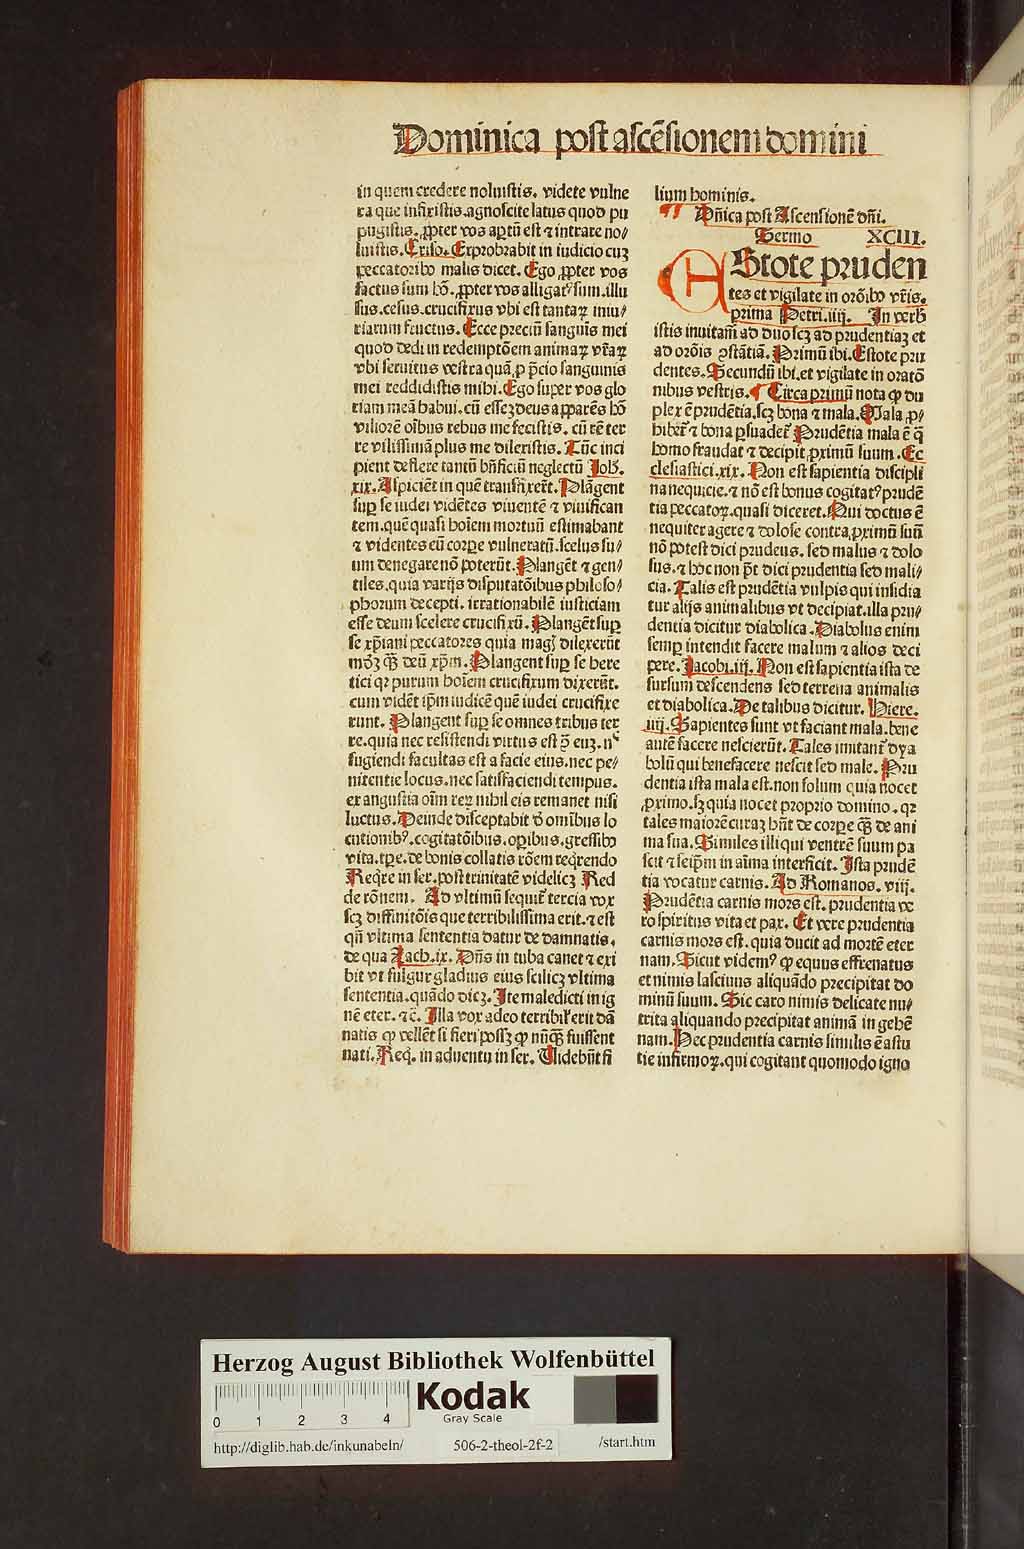 Dominica post ascēsionem domini
in quem credere noluistis. videte vulne
ra que infixistis. agnoscite latus quod pu
pugistis. ꝓpter vos aꝑtū est ⁊ intrare no/
luistis. Criso. Exprobrabit in iudicio cuȝ
peccatoribꝰ malis dicet. Ego ꝓpter vos
factus sum hō. ꝓpter vos alligatꝰ sum. illu
sus. cesus. crucifixus vbi est tantaꝝ iniu/
riarum fructus. Ecce preciū sanguis mei
quod dedi in redemptōem animaꝝ vr̄aꝝ
vbi seruitus vestra quā ꝓ p̄cio sanguinis
mei reddidistis mihi. Ego super vos glo
riam meā habui. cū esseȝ deus apparēs hō
viliorē oībus rebus me fecistis. cū rē ter
re vilissimā plus me dilexistis. Tūc inci
pient deflere tantū bn̄ficiū neglectū Joh.
xix. Aspiciēt in quē transfixer̄t. Plāgent
suꝑ se iudei vidētes viuentē ⁊ viuifican
tem. quē quasi hoīem mortuū estimabant
⁊ videntes eū corꝑe vulneratū. scelus su/
um denegare nō poterūt. Plangēt ⁊ gen/
tiles. quia varijs disputatōibus philoso/
phorum decepti. irrationabilē iusticiam
esse deum scelere crucifixū. Plangēt suꝑ
se xp̄iani peccatores quia magꝭ dilexerūt
mōȝ qꝫ deū xp̄m. Plangent suꝑ se here
tici qꝛ purum hoīem crucifixum dixerūt.
cum vidēt ip̄m iudicē quē iudei crucifixe
runt. Plangent suꝑ se omnes tribus ter
re. quia nec resistendi virtus est ꝯ̄ euȝ. nᶜ
fugiendi facultas est a facie eius. nec pe/
nitentie locus. nec satisfaciendi tempus.
ex angustia oīm reꝝ nihil eis remanet nisi
luctus. Deinde disceptabit d̄ omībus lo
cutionibꝰ. cogitatōibus. oꝑibus. gressibꝰ
vita. tꝑe. de bonis collatis rōem reqrendo
Reqre in ser. post trinitatē videlicȝ Red
de rōnem. Ad vltimū sequit̄ tercia vox
scȝ diffinitōis que terribilissima erit. ⁊ est
qn̄ vltima sententia datur de damnatis.
de qua Zach. ix. Dn̄s in tuba canet ⁊ exi
bit vt fulgur gladius eius scilicȝ vltima
sententia. quādo dicȝ. Ite maledicti in ig
nē eter. ⁊c̄. Illa vox adeo terribilꝭ erit dā
natis ꝙ vellēt si fieri possȝ ꝙ nūqꝫ fuissent
nati. Req. in aduentu in ser. Videbūt fi
lium hominis.
¶ Dn̄ica post Ascensionē dn̄i.
Sermo XCIII.
EStote pruden
tes et vigilate in orōibꝰ vr̄is.
prima Petri. iiij. In verb
istis inuitam̄ ad duo scȝ ad prudentiaȝ et
ad orōis ꝯstātiā. Primū ibi. Estote pru
dentes. Secundū ibi. et vigilate in oratō
nibus vestris. ¶ Circa primū nota ꝙ du
plex ē prudētia. scȝ bona ⁊ mala. Mala ꝓ/
hibet̄ ⁊ bona ꝑsuadet̄ Prudētia mala ē q̄
homo fraudat ⁊ decipit ꝓximū suum. Ec
clesiastici. xix. Non est sapientia discipli
na nequicie. ⁊ nō est bonus cogitatꝰ prudē
tia peccatoꝝ. quasi diceret. Qui doctus ē
nequiter agere ⁊ dolose contra ꝓximū suū
nō potest dici prudēus. sed malus ⁊ dolo
sus. ⁊ hoc non p̄t dici prudentia sed mali/
cia. Talis est prudētia vulpis qui insidia
tur alijs animalibus vt decipiat. illa pru/
dentia dicitur diabolica. Diabolus enim
semꝑ intendit facere malum ⁊ alios deci
pere. Jacobi. iij. Non est sapientia ista de
sursum descendens sed terrena animalis
et diabolica. De talibus dicitur. Hiere.
iiij. Sapientes sunt vt faciant mala. bene
autē facere nescierūt. Tales imitant̄ dya
bolū qui benefacere nescit sed male. Pru
dentia ista mala est. non solum quia nocet
ꝓximo. sȝ quia nocet proprio domino. qꝛ
tales maiorē curaȝ hn̄t de corꝑe qꝫ de ani
ma sua. Similes illi qui ventrē suum pa
scit ⁊ seip̄m in aīma interficit. Ista prudē
tia vocatur carnis. Ad Romanos. viij.
Prudētia carnis mors est. prudentia ve
ro spiritus vita et pax. Et vere prudentia
carnis mors est. quia ducit ad mortē eter
nam. Sicut videmꝰ ꝙ equus effrenatus
et nimis lasciuus aliquādo precipitat do
minū suum. Sic caro nimis delicate nu/
trita aliquando precipitat animā in gehē
nam. Hec prudentia carnis similis ē astu
tie infirmoꝝ. qui cogitant quomodo igno
Herzog August Bibliothek Wolfenbüttel
0 1 2 3 4
Kodak
Gray Scale
http://diglib.hab.de/inkunabeln/ 506-2-theol-2f-2 /start.htm